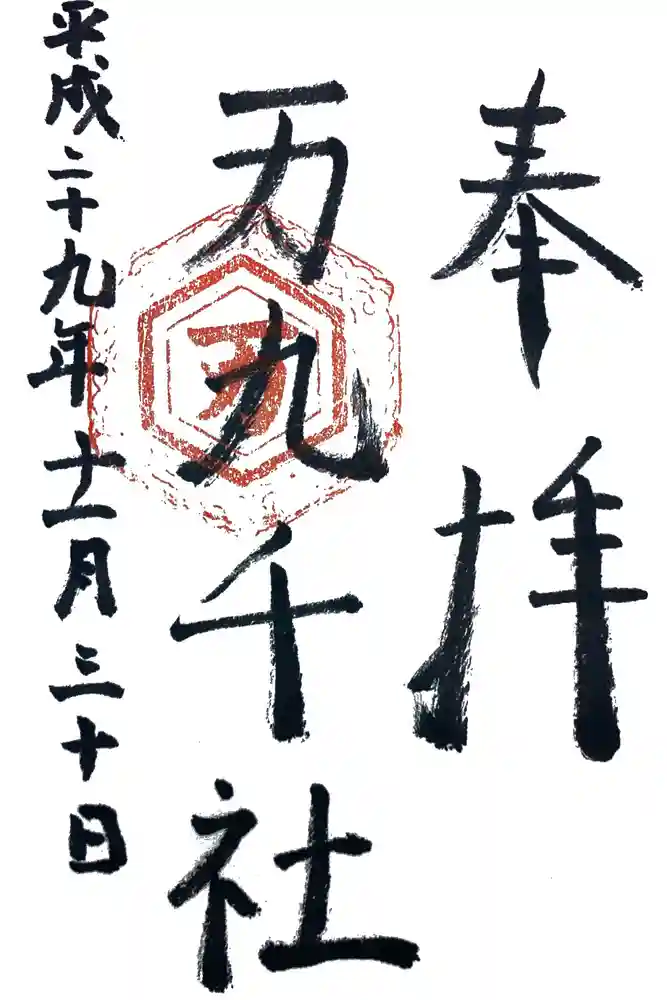 奉拝
万九千社
平成二十九年十一月三十日
万